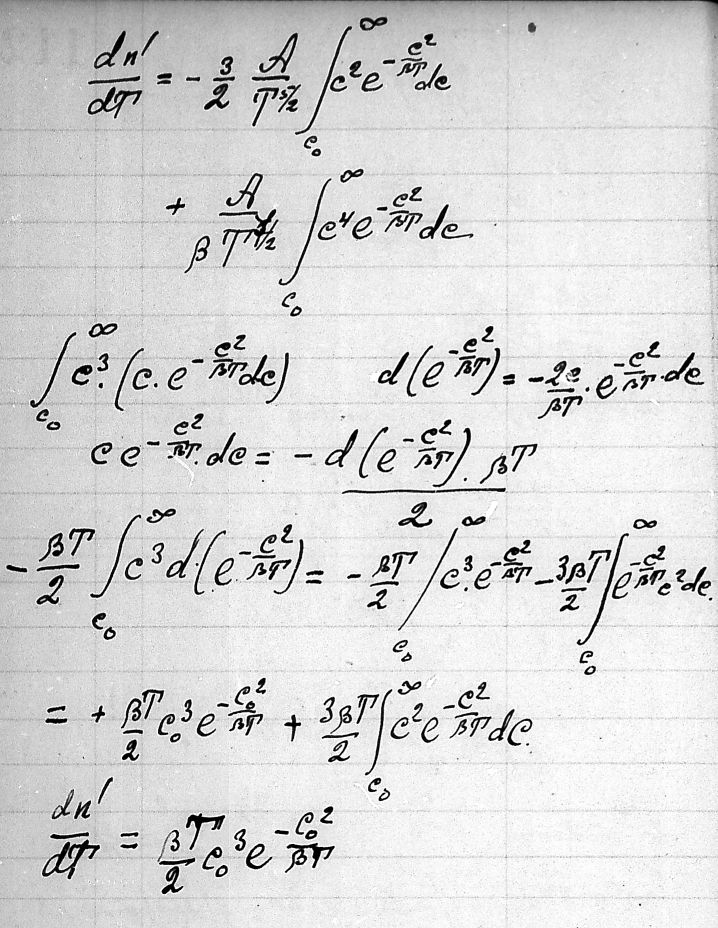 dn'/dT = - 3/2 A/T^5/2 ∫_{c₀}^{∞} c² e^{-c²/βT} dc
+ A/(β T^7/2) ∫_{c₀}^{∞} c⁴ e^{-c²/βT} dc
∫_{c₀}^{∞} c³. (c. e^{-c²/βT} dc) d(e^{-c²/βT}) = - 2c/βT . e^{-c²/βT} . dc
c e^{-c²/βT} . dc = - d(e^{-c²/βT}) . βT / 2
- βT/2 ∫_{c₀}^{∞} c³ d(e^{-c²/βT}) = - βT/2 /_{c₀}^{∞} c³. e^{-c²/βT} - 3βT/2 ∫_{c₀}^{∞} e^{-c²/βT} c² dc.
= + βT/2 c₀³ e^{-c₀²/βT} + 3βT/2 ∫_{c₀}^{∞} c² e^{-c²/βT} dc.
dn'/dT = βT/2 c₀³ e^{-c₀²/βT}